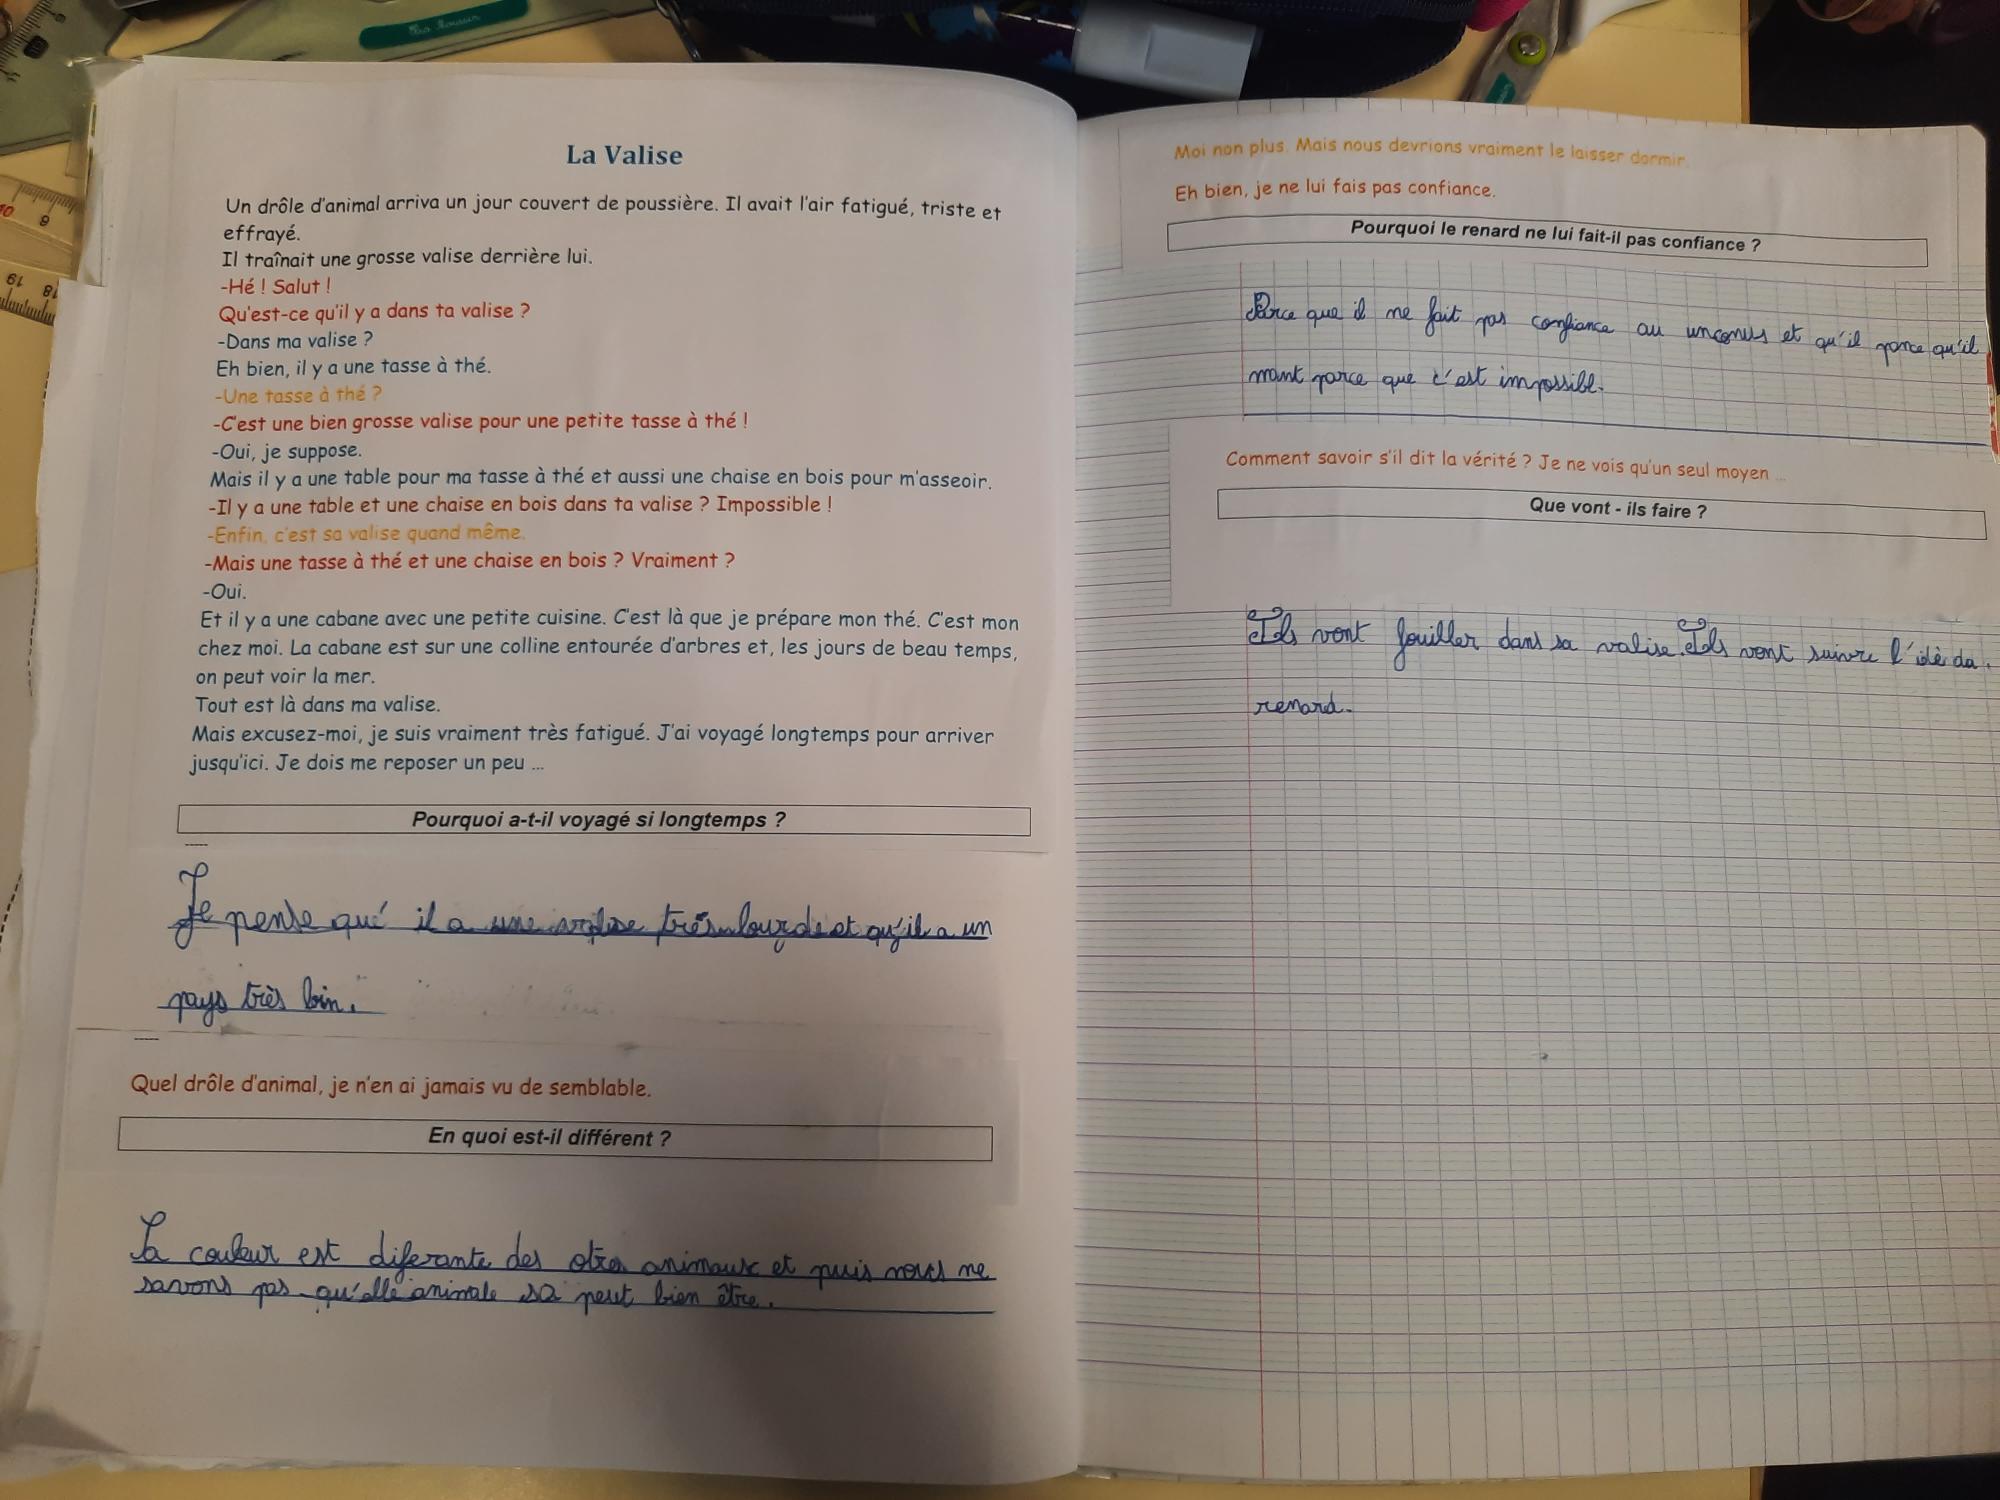 La Valise
Un drôle d'animal arriva un jour couvert de poussière. Il avait l'air fatigué, triste et
effrayé.
Il traînait une grosse valise derrière lui.
-Hé ! Salut !
Qu'est-ce qu'il y a dans ta valise ?
-Dans ma valise ?
Eh bien, il y a une tasse à thé.
-Une tasse à thé ?
-C'est une bien grosse valise pour une petite tasse à thé !
-Oui, je suppose.
Mais il y a une table pour ma tasse à thé et aussi une chaise en bois pour m'asseoir.
-Il y a une table et une chaise en bois dans ta valise ? Impossible !
-Enfin, c'est sa valise quand même.
-Mais une tasse à thé et une chaise en bois ? Vraiment ?
-Oui.
Et il y a une cabane avec une petite cuisine. C'est là que je prépare mon thé. C'est mon
chez moi. La cabane est sur une colline entourée d'arbres et, les jours de beau temps,
on peut voir la mer.
Tout est là dans ma valise.
Mais excusez-moi, je suis vraiment très fatigué. J'ai voyagé longtemps pour arriver
jusqu'ici. Je dois me reposer un peu ...
Pourquoi a-t-il voyagé si longtemps ?
Je pense qué il a une valise très lourde et qu'il a un
pays très loin.
Quel drôle d'animal, je n'en ai jamais vu de semblable.
En quoi est-il différent ?
Sa couleur est diferante des otres animaux et puis nous ne
savons pas qu'elle animale sa peut bien être.
Moi non plus. Mais nous devrions vraiment le laisser dormir.
Eh bien, je ne lui fais pas confiance.
Pourquoi le renard ne lui fait-il pas confiance ?
Parce que il ne fait pas confiance au unconus et qu'il parce qu'il
mant parce que c'est impossible.
Comment savoir s'il dit la vérité ? Je ne vois qu'un seul moyen ...
Que vont - ils faire ?
Ils vont fouiller dans sa valise. Ils vont suivre l'idè da
renard.